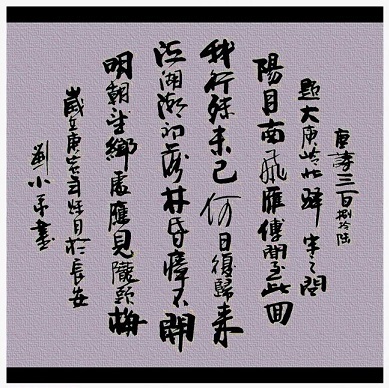 唐詩三百捌拾陸
題大庾嶺北驛 宋之問
陽月南飛雁傳聞至此回
我行殊未已何日復歸來
江潮初落林昏瘴不開
明朝望鄉處應見隴頭梅
歲在庚寅年秋月於長安
劉小平書